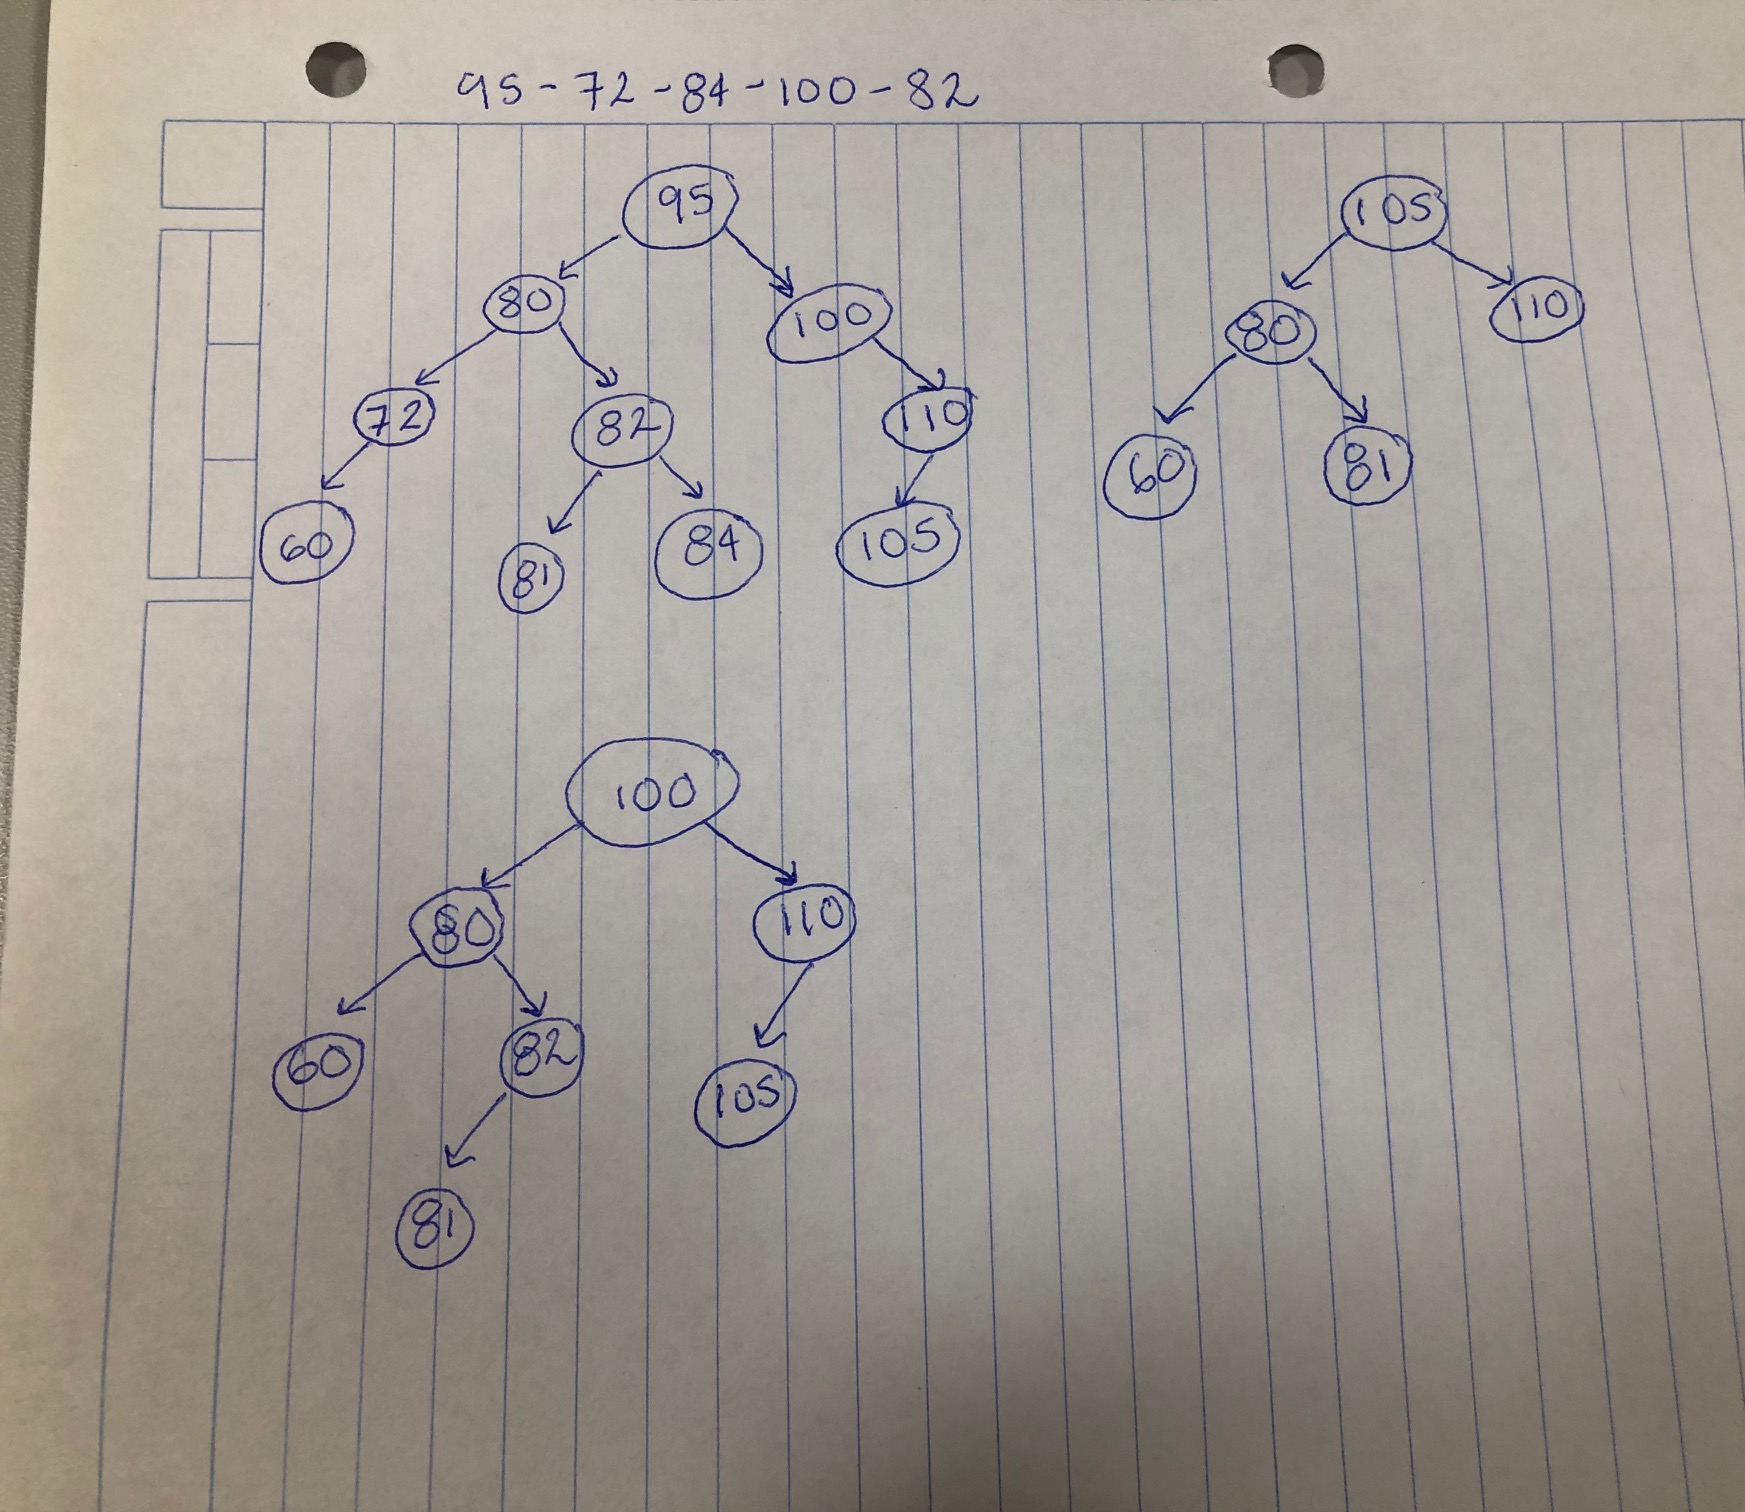 95-72-84-100-82
95
80 100
72 82 110
60 81 84 105
105
80 110
60 81
100
80 110
60 82 105
81